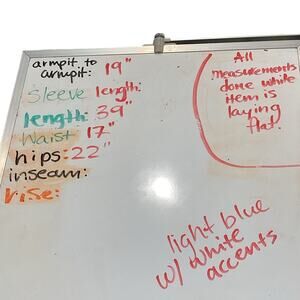 armpit to
armpit: 19"
Sleeve length:
length: 39"
Waist 17"
hips: 22"
inseam:
rise:
All
measurements
done while
item is
laying
flat.
light blue
w/ white
accents